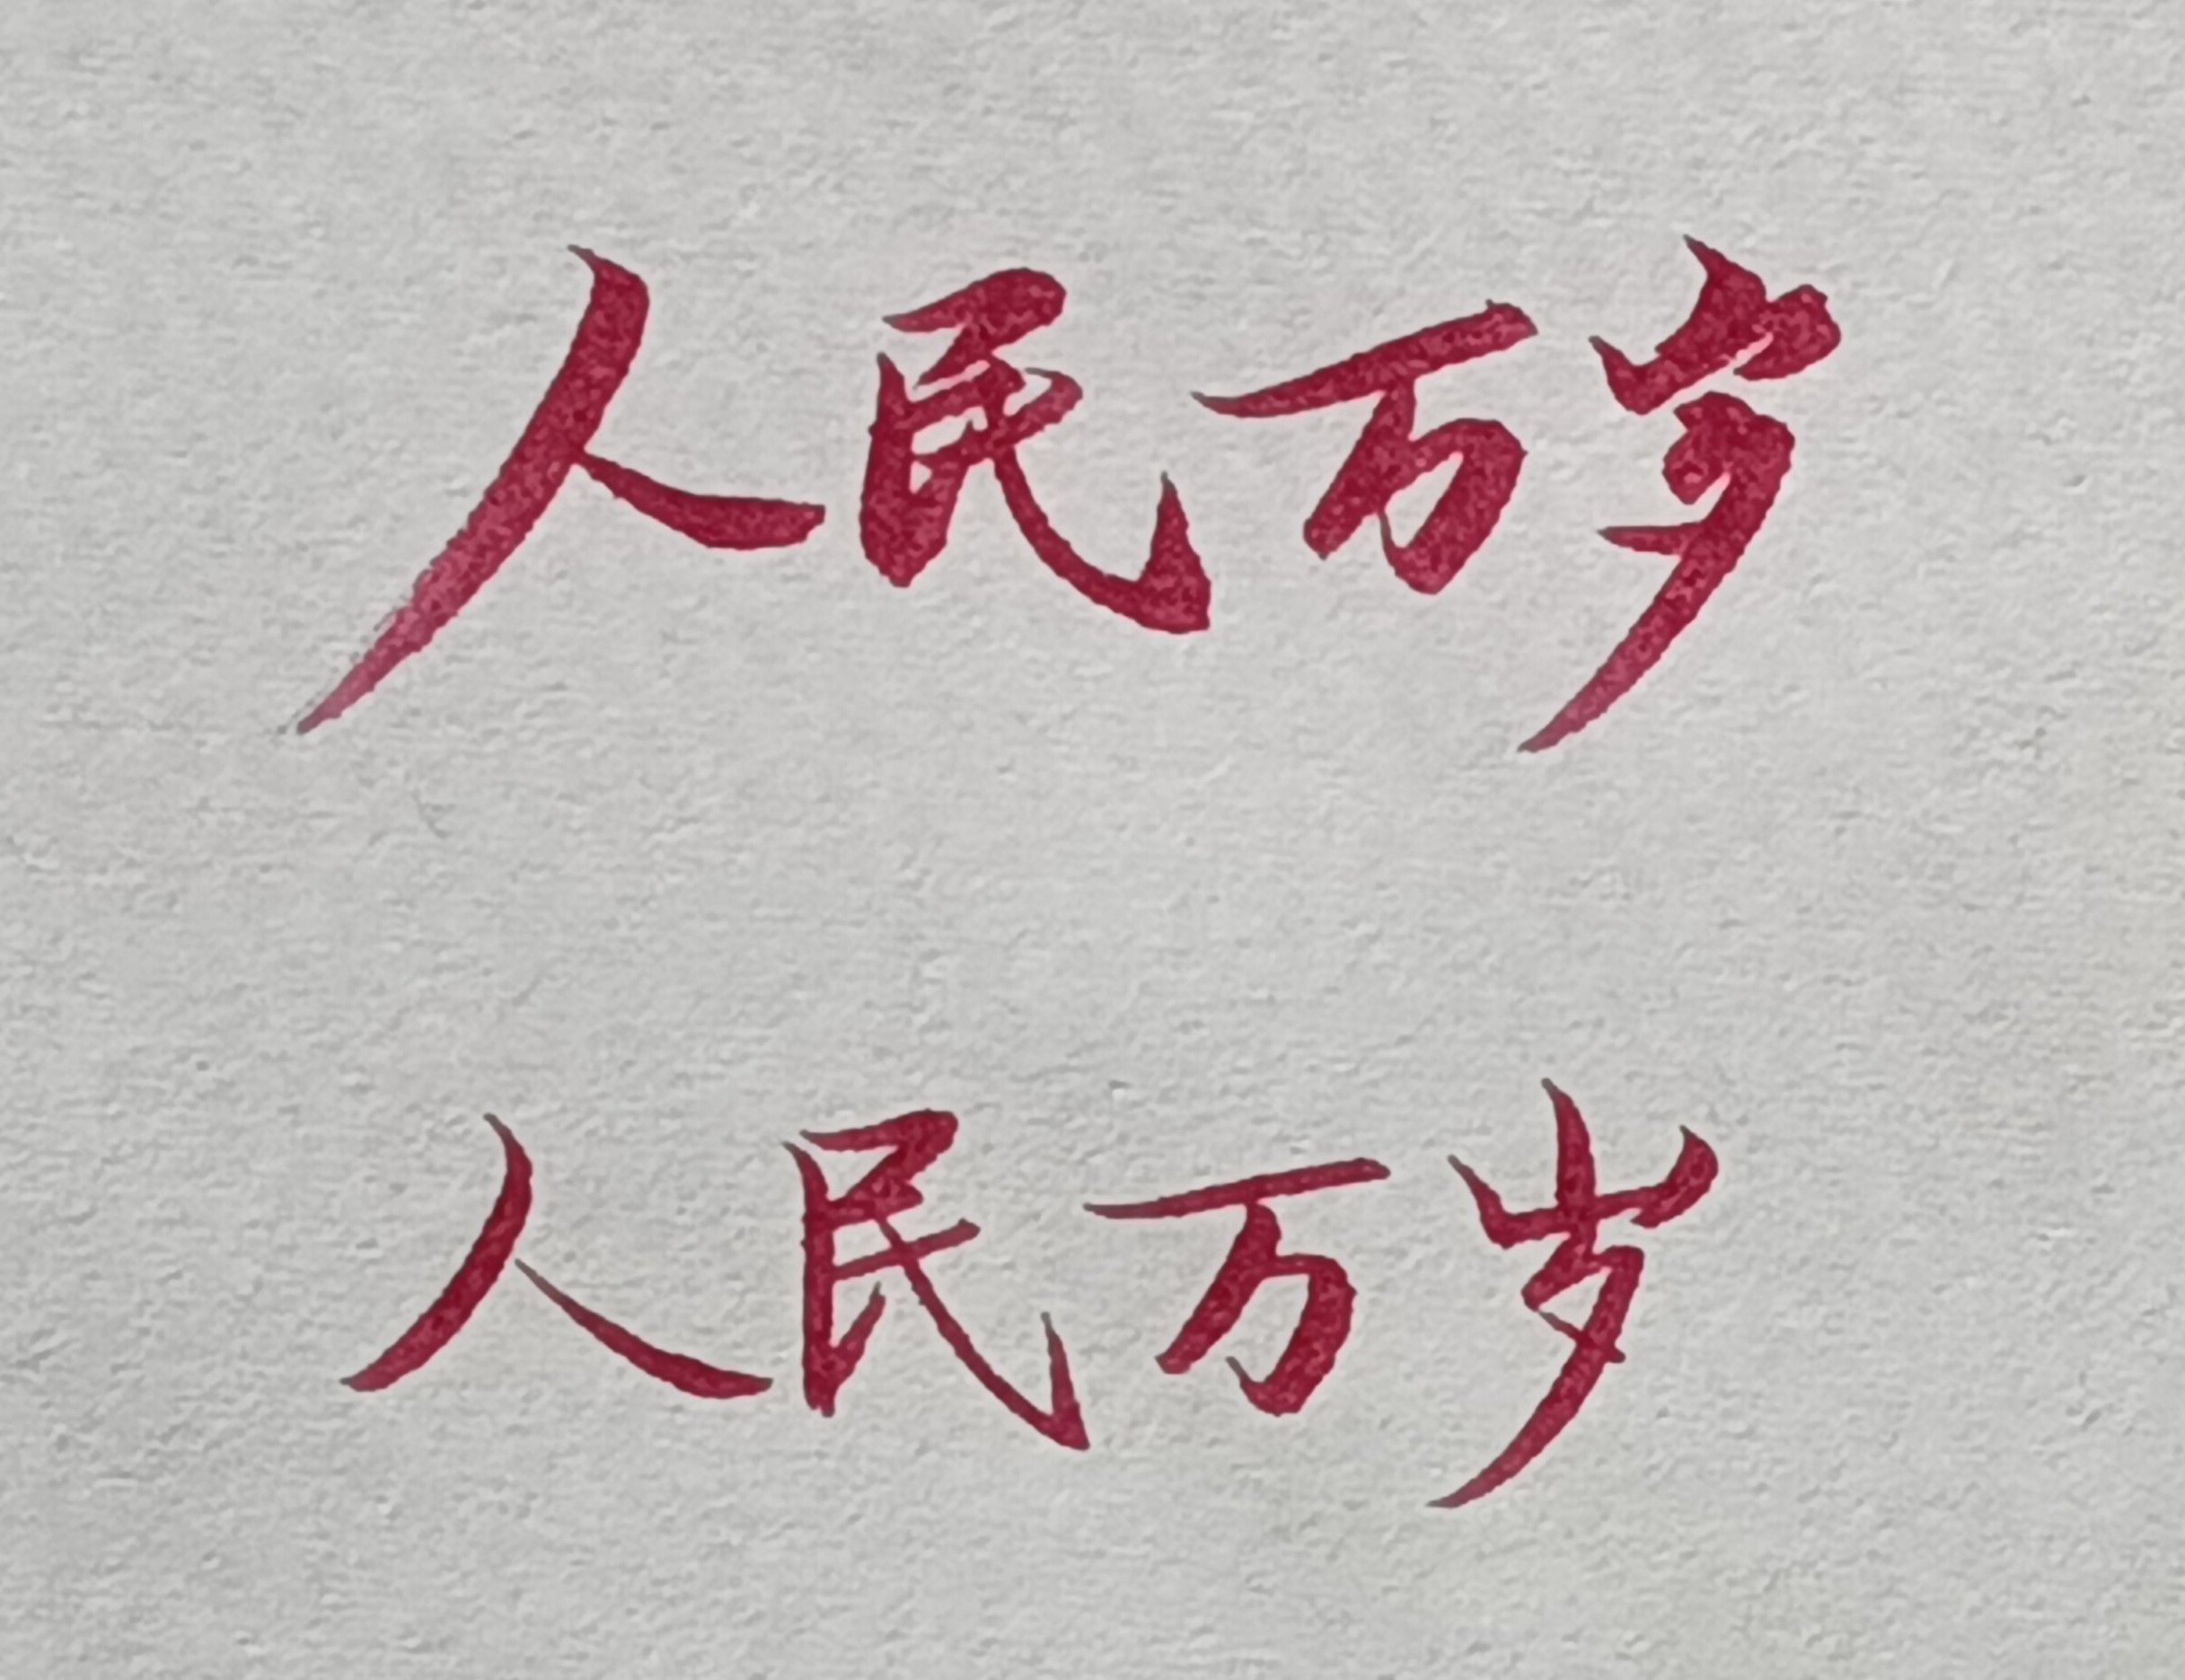 人民万岁
人民万岁